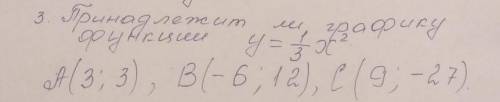 3. Принадлежит ли графику
функции y = 1/3 x²
A(3; 3), B(-6; 12), C(9; -27).